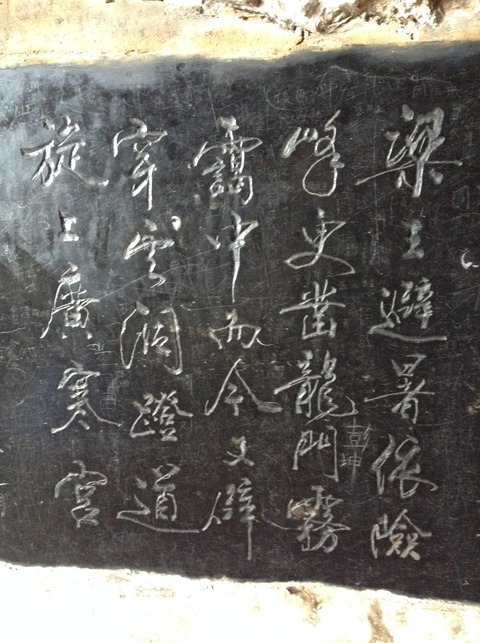 梁王避暑依險
峰更凿龍門霧
靄中而今又辟
穿雲洞蹬道
旋上廣寒宮
彭坤